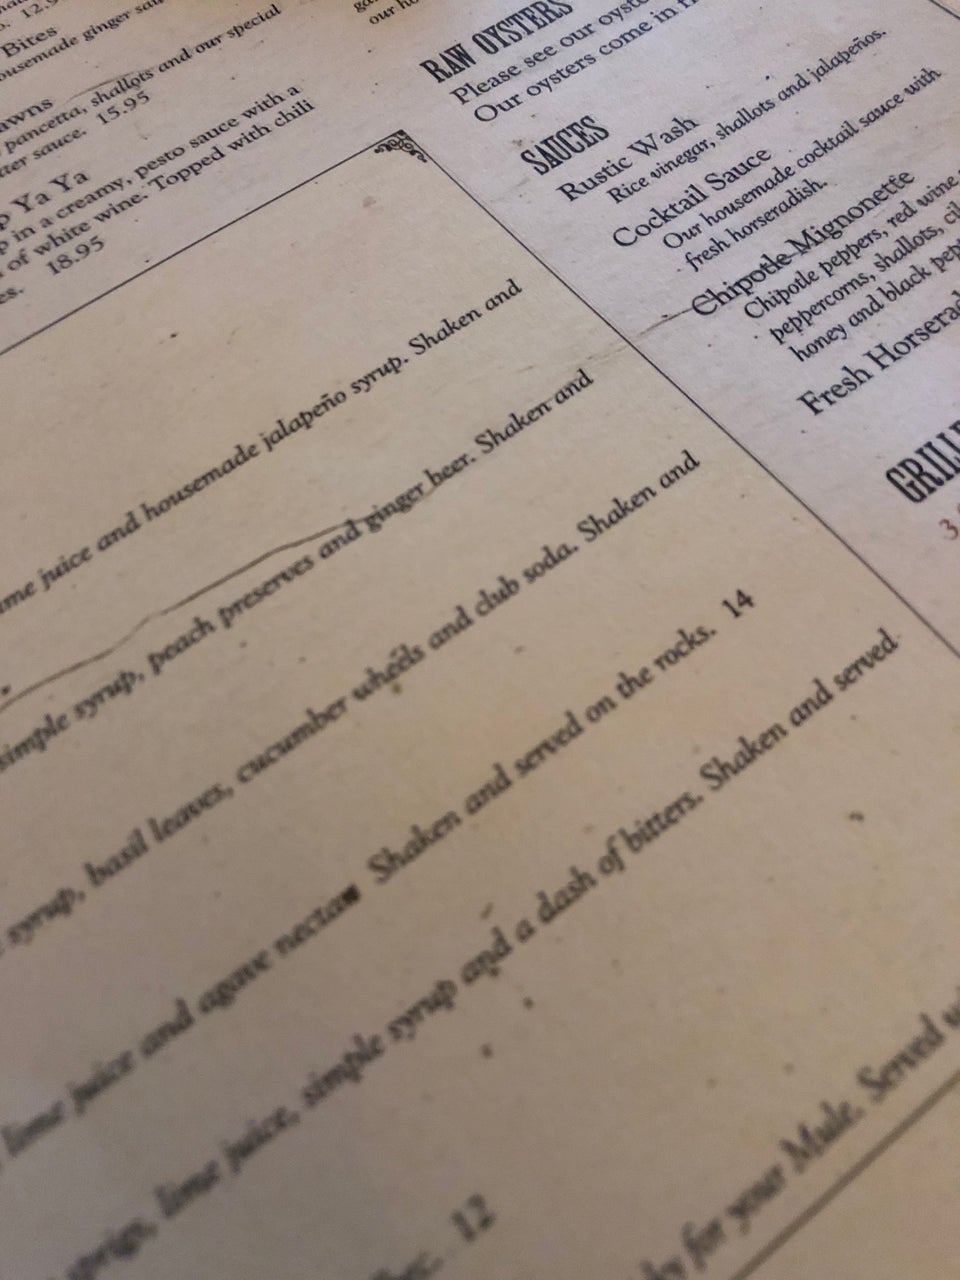 12.9
Bites
housemade ginger
pancetta, shallots and our special
sauce. 15.95
Ya Ya
in a creamy, pesto sauce with a
of white wine. Topped with chili
18.95
our
RAW OYSTERS
Please see our
Our oysters come in
SAUCES
Rustic Wash
Rice vinegar, shallots and jalapeños.
Cocktail Sauce
Our housemade cocktail sauce with
fresh horseradish.
Chipotle Mignonette
Chipotle peppers, red wine
peppercorns, shallots,
honey and black
Fresh
3
juice and housemade jalapeño syrup. Shaken and
simple syrup, peach preserves and ginger beer. Shaken and
syrup, basil leaves, cucumber wheels and club soda. Shaken and
lime juice and agave nectar. Shaken and served on the rocks. 14
lime juice, simple syrup and a dash of bitters. Shaken and served
12
for your Mule. Served